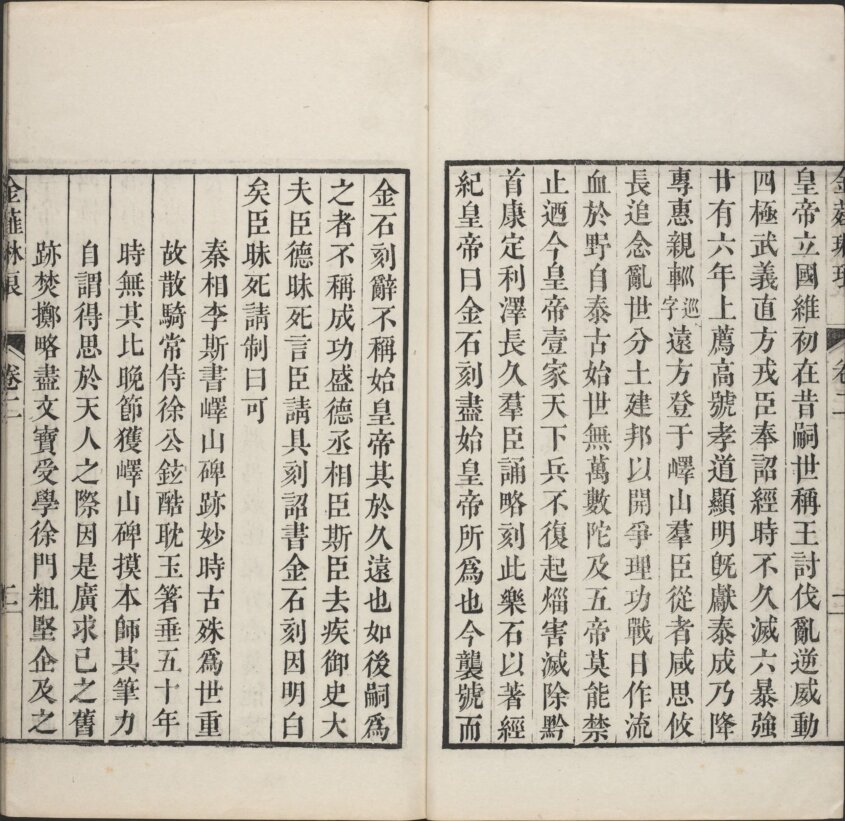 金薤琳琅 卷二
皇帝立國維初在昔嗣世稱王討伐亂逆威動
四極武義直方戎臣奉詔經時不久滅六暴強
廿有六年上薦高號孝道顯明旣獻泰成乃降
專惠親𨋎巡字遠方登于嶧山羣臣從者咸思攸
長追念亂世分土建邦以開爭理功戰日作流
血於野自泰古始世無萬數陀及五帝莫能禁
止迺今皇帝壹家天下兵不復起熖害滅除黔
首康定利澤長久羣臣誦略刻此樂石以著經
紀皇帝曰金石刻盡始皇帝所爲也今襲號而
金石刻辭不稱始皇帝其於久遠也如後嗣爲
之者不稱成功盛德丞相臣斯臣去疾御史大
夫臣德昧死言臣請具刻詔書金石刻因明白
矣臣昧死請制曰可
秦相李斯書嶧山碑跡妙時古殊爲世重
故散騎常侍徐公鉉酷耽玉箸垂五十年
時無其比晚節獲嶧山碑摸本師其筆力
自謂得思於天人之際因是廣求己之舊
跡焚擲略盡文寶受學徐門粗堅企及之
金薤琳琅 卷二 二